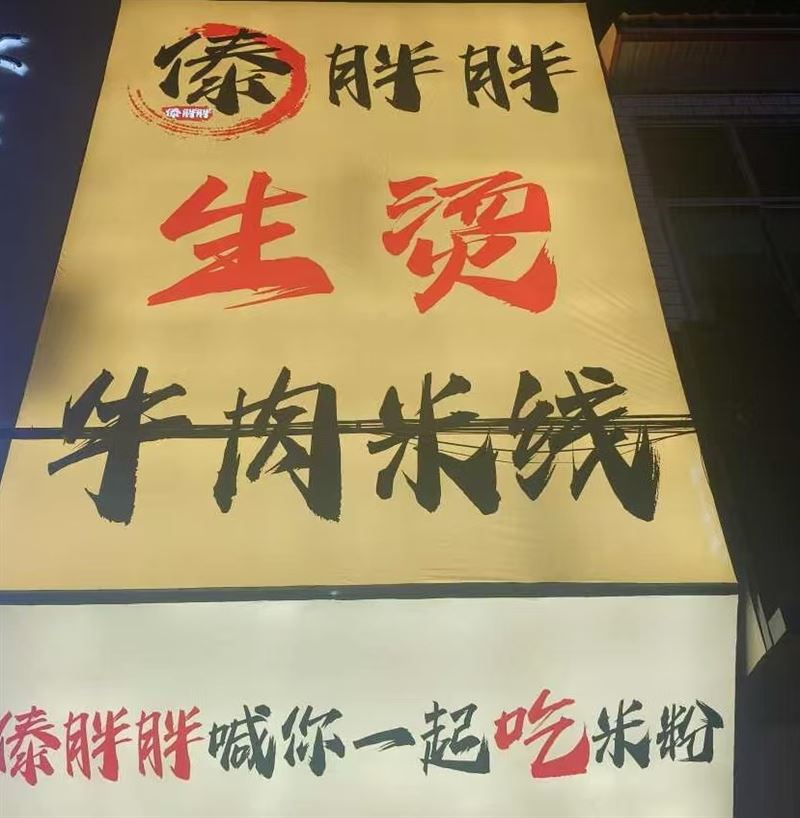 傣胖胖
傣胖胖
生烫
牛肉米线
傣胖胖喊你一起吃米粉